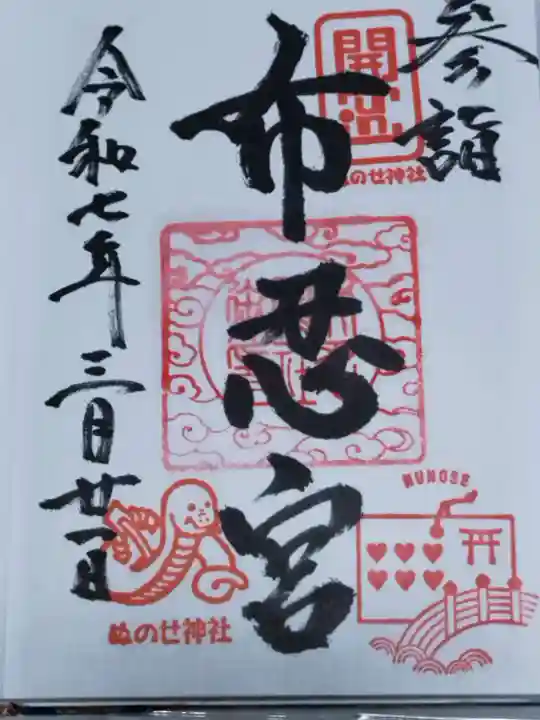 参詣
開
ぬのせ神社
布忍宮
令和七年三月廿一日
NUNOSE
ぬのせ神社